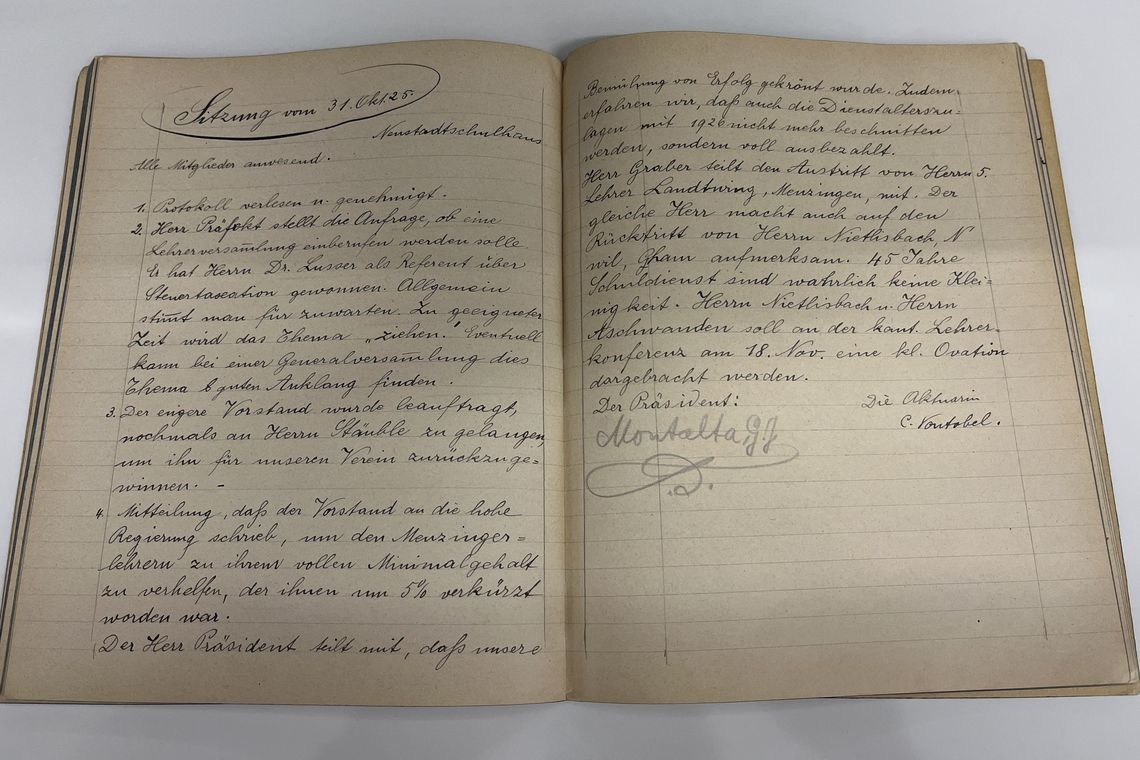 Sitzung vom 31. Okt. 25.
Neustadtschulhaus
Alle Mitglieder anwesend.
1. Protokoll verlesen u. genehmigt.
2. Herr Präfekt stellt die Anfrage, ob eine
Lehrerversam̅lung einberufen werden solle.
Er hat Herrn Dr. Lusser als Referent über
Steuertaxation gewonnen. Allgemein
stim̅t man für zuwarten. Zu geeigneter
Zeit wird das Thema „ziehen." Eventuell
kann bei einer Generalversam̅lung dies
Thema guten Anklang finden.
3. Der engere Vorstand wurde beauftragt,
nochmals an Herrn Stäuble zu gelangen,
um ihn für unseren Verein zurückzuge=
winnen. –
4. Mitteilung, daß der Vorstand an die hohe
Regierung schrieb, um den Menzinger=
lehrern zu ihrem vollen Minimalgehalt
zu verhelfen, der ihnen um 5% verkürzt
worden war.
Der Herr Präsident teilt mit, daß unsere
Bemühung von Erfolg gekrönt wurde. Zudem
erfahren wir, daß auch die Dienstalterszu-
lagen mit 1926 nicht mehr beschnitten
werden, sondern voll ausbezahlt.
Herr Graber teilt den Austritt von Herrn 5.
Lehrer Landtwing, Menzingen, mit. Der
gleiche Herr macht auch auf den
Rücktritt von Herrn Nietlisbach, N
wil, Cham aufmerksam. 45 Jahre
Schuldienst sind wahrlich keine Klei=
nigkeit. Herrn Nietlisbach u. Herrn
Aschwanden soll an der kant. Lehrer-
konferenz am 18. Nov. eine kl. Ovation
dargebracht werden.
Der Präsident: Die Aktuarin
Montalta C. Vontobel.